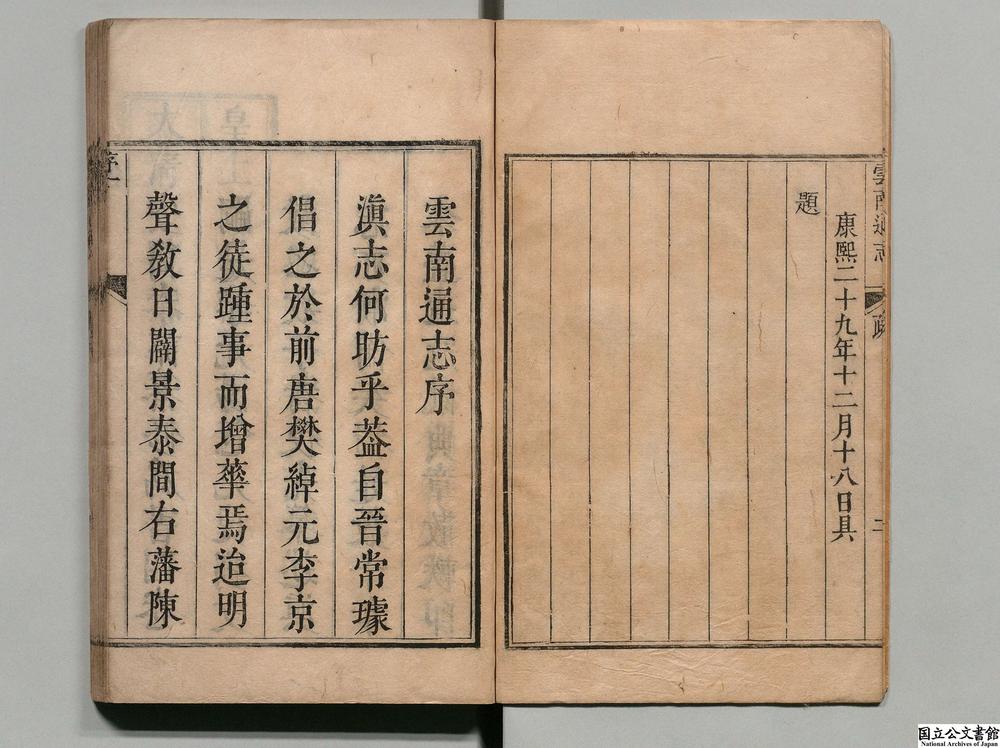 雲南通志
疏
二
康熙二十九年十二月十八日具
題
雲南通志序
滇志何昉乎葢自晉常璩
倡之於前唐樊綽元李京
之徒踵事而增華焉迨明
聲敎日闢景泰間右藩陳
序
一
国立公文書館
National Archives of Japan